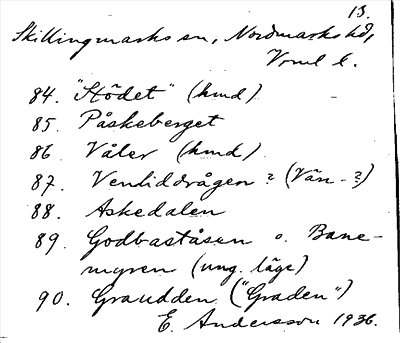 13.
Skillingmarks sn, Nordmarks hd,
Vrml l.
84. "Stödet" (hmd)
85. Påskeberget
86 Våler (hmd)
87. Vendiddrågen? (Vän-?)
88. Askedalen
89. Godbaståsen o. Bane-
myren (ung. läge)
90. Graudden ("Graden")
E. Andersson 1936.